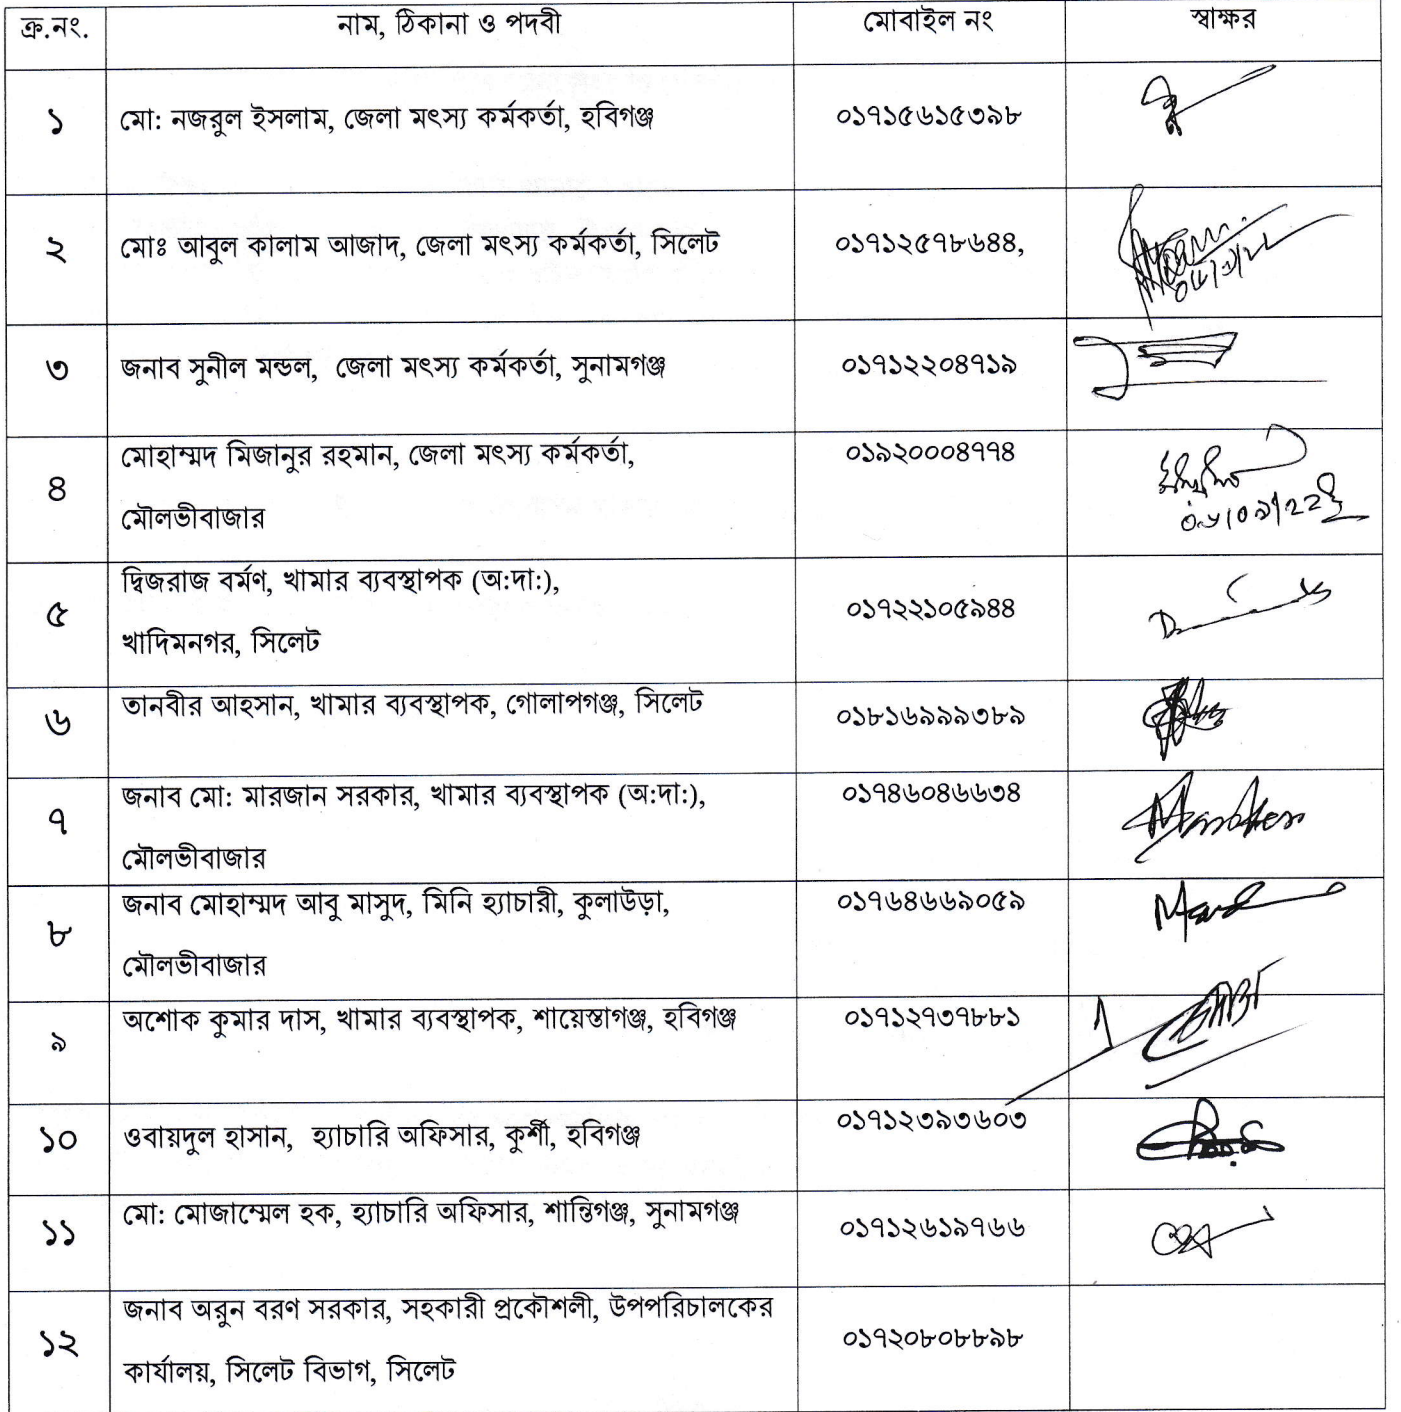 ক্র.নং. নাম, ঠিকানা ও পদবী মোবাইল নং স্বাক্ষর
১ মো: নজরুল ইসলাম, জেলা মৎস্য কর্মকর্তা, হবিগঞ্জ ০১৭১৫৬১৫৩৯৮
২ মোঃ আবুল কালাম আজাদ, জেলা মৎস্য কর্মকর্তা, সিলেট ০১৭১২৫৭৮৬৪৪,
৩ জনাব সুনীল মন্ডল, জেলা মৎস্য কর্মকর্তা, সুনামগঞ্জ ০১৭১২২০৪৭১৯
৪ মোহাম্মদ মিজানুর রহমান, জেলা মৎস্য কর্মকর্তা, ০১৯২০০০৪৭৭৪
মৌলভীবাজার
৫ দ্বিজরাজ বর্মণ, খামার ব্যবস্থাপক (অ:দা:), ০১৭২২১০৫৯৪৪
খাদিমনগর, সিলেট
৬ তানবীর আহসান, খামার ব্যবস্থাপক, গোলাপগঞ্জ, সিলেট ০১৮১৬৯৯৯৩৮৯
৭ জনাব মো: মারজান সরকার, খামার ব্যবস্থাপক (অ:দা:), ০১৭৪৬০৪৬৬৩৪
মৌলভীবাজার
৮ জনাব মোহাম্মদ আবু মাসুদ, মিনি হ্যাচারী, কুলাউড়া, ০১৭৬৪৬৬৯০৫৯
মৌলভীবাজার
৯ অশোক কুমার দাস, খামার ব্যবস্থাপক, শায়েস্তাগঞ্জ, হবিগঞ্জ ০১৭১২৭৩৭৮৮১
১০ ওবায়দুল হাসান, হ্যাচারি অফিসার, কুর্শী, হবিগঞ্জ ০১৭১২৩৯৩৬০৩
১১ মো: মোজাম্মেল হক, হ্যাচারি অফিসার, শান্তিগঞ্জ, সুনামগঞ্জ ০১৭১২৬১৯৭৬৬
১২ জনাব অরুন বরণ সরকার, সহকারী প্রকৌশলী, উপপরিচালকের ০১৭২০৮০৮৮৯৮
কার্যালয়, সিলেট বিভাগ, সিলেট